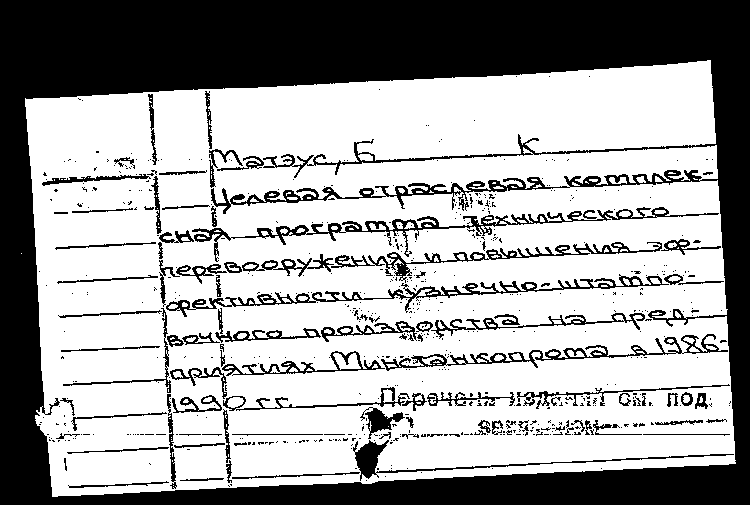 Матэус, Б К
Целевая отраслевая комплек-
сная программа технического
перевооружения и повышения эф-
фективности кузнечно-штампо-
вочного производства на пред-
приятиях Минстанкопрома в 1986-
1990 гг. Перечень изданий см. под